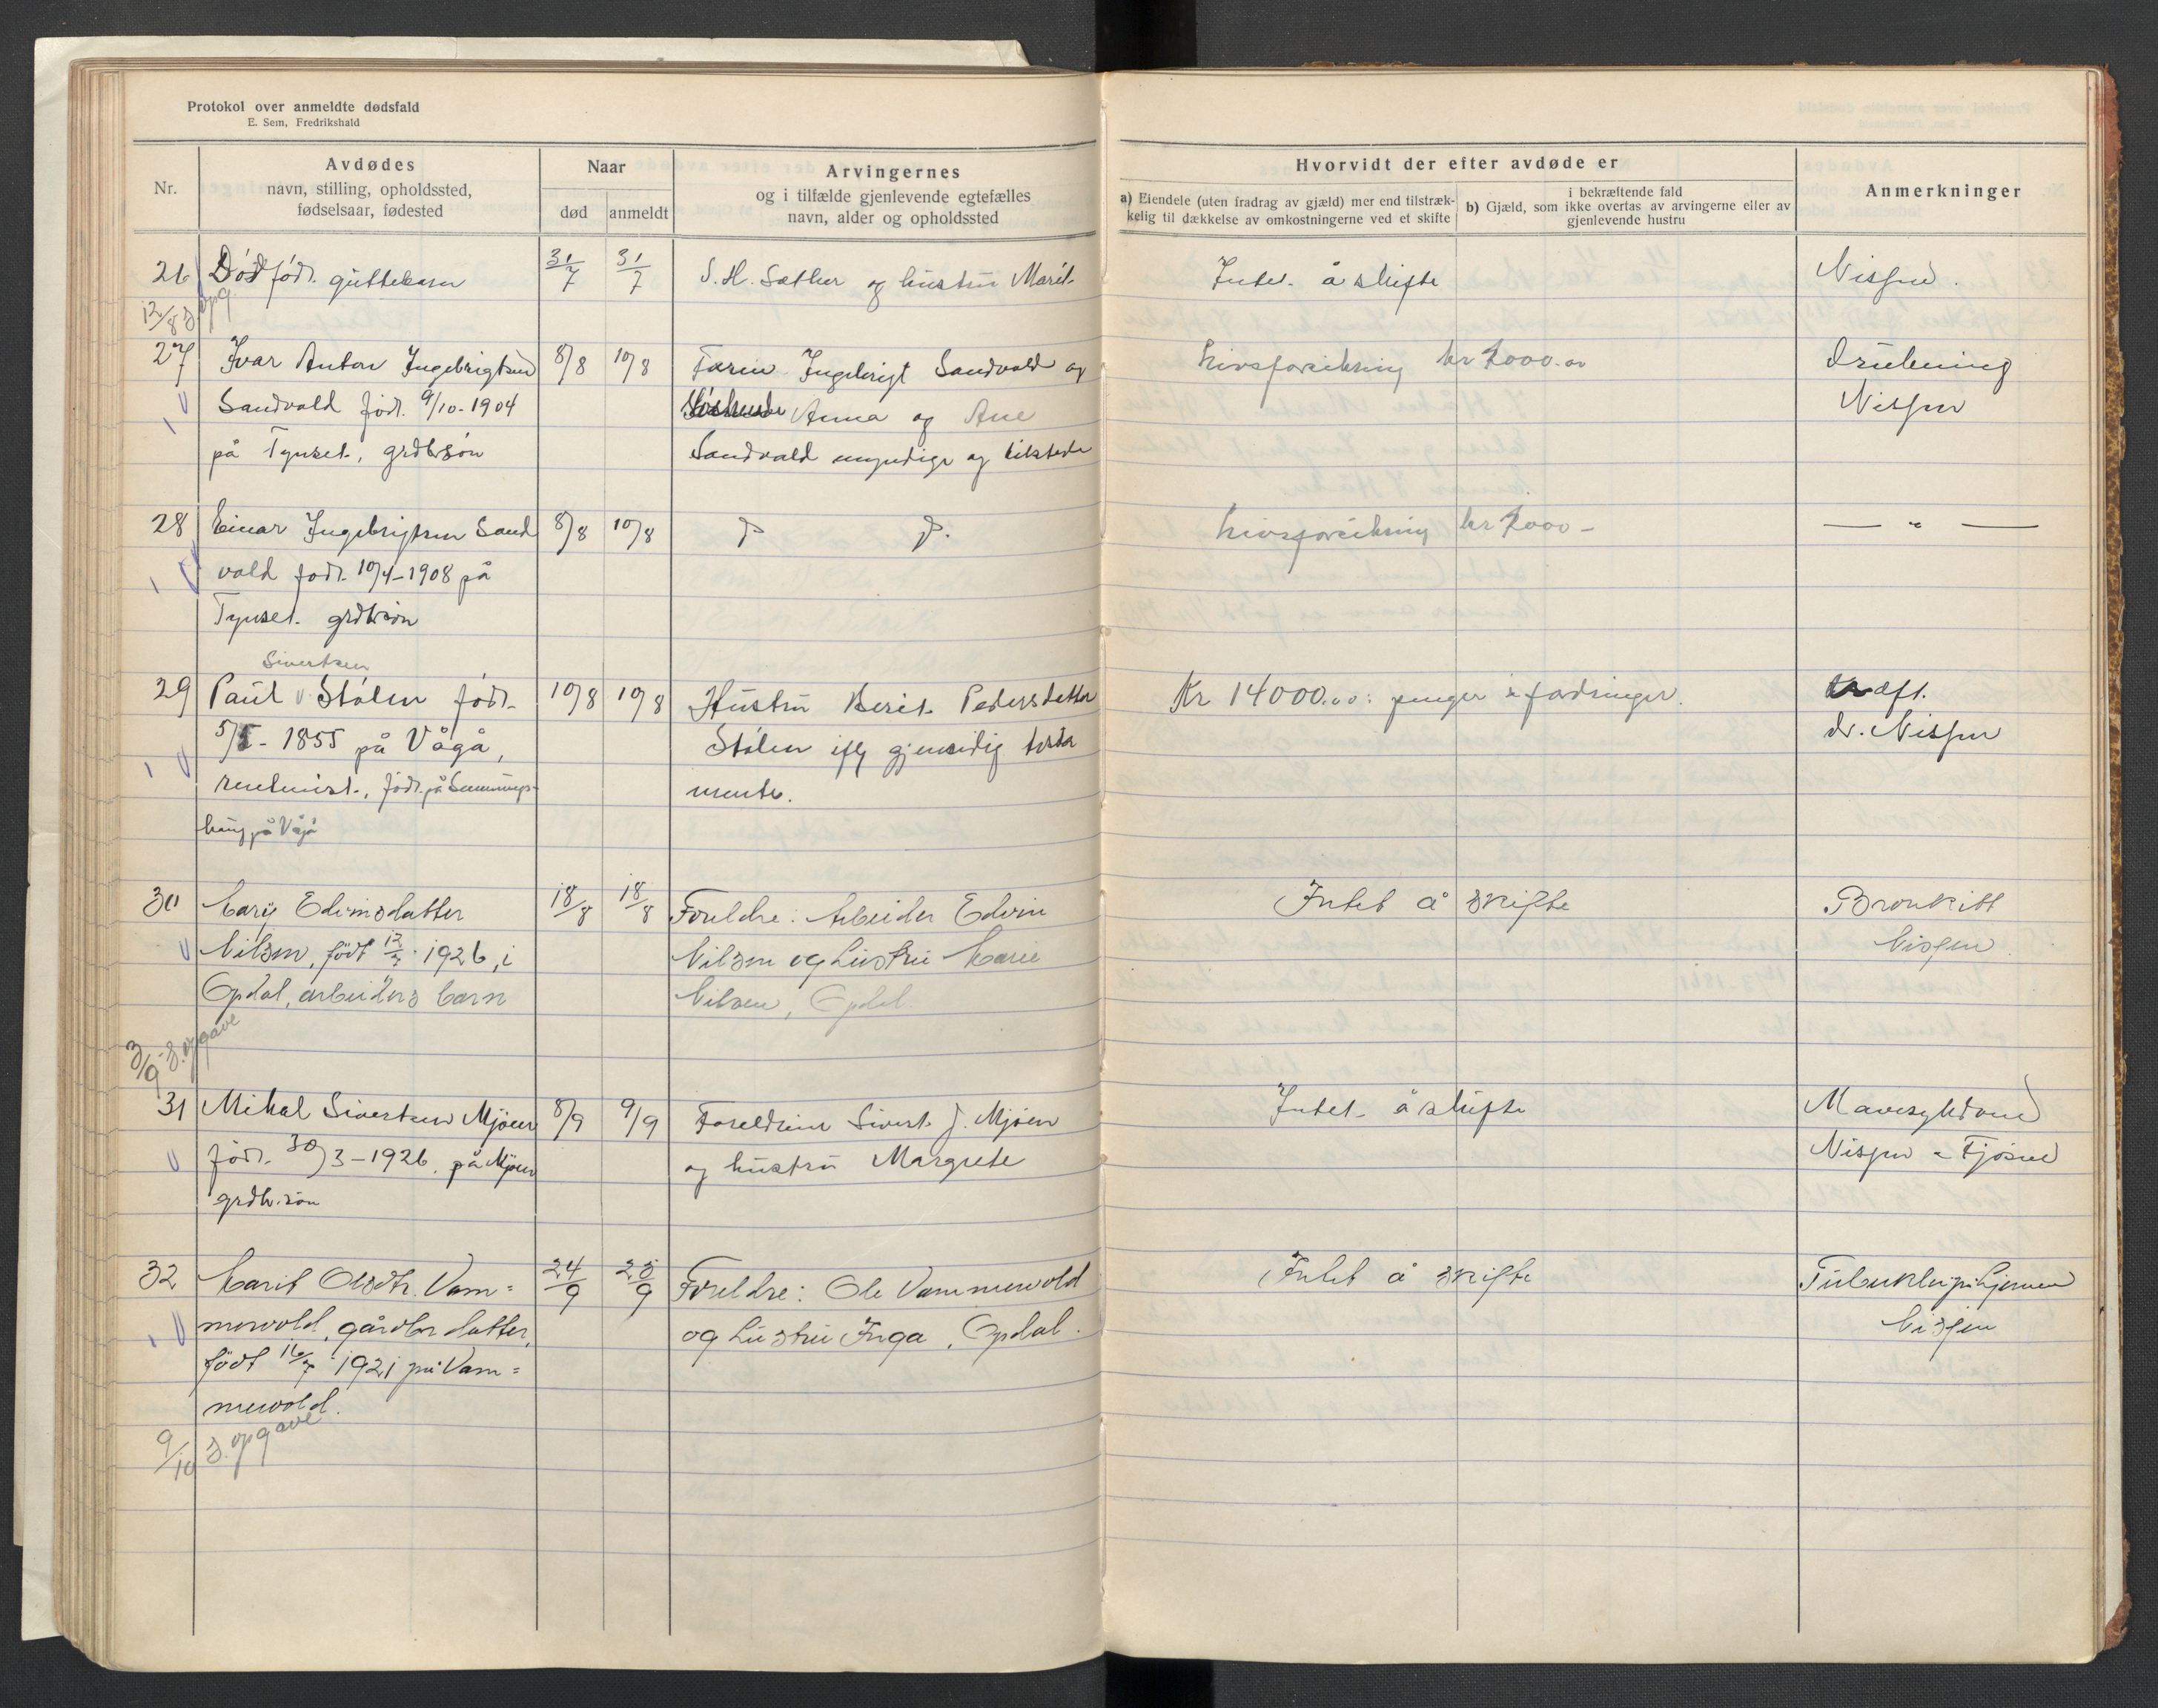 Protokol over anmeldte dødsfald
E. Sem, Fredrikshald
Nr.
Avdødes
navn, stilling, opholdssted,
fødselsaar, fødested
Naar
død
anmeldt
Arvingernes
og i tilfælde gjenlevende egtefælles
navn, alder og opholdssted
Hvorvidt der efter avdøde er
a) Eiendele (uten fradrag av gjæld) mer end tilstræk-
kelig til dækkelse av omkostningerne ved et skifte
i bekræftende fald
b) Gjæld, som ikke overtas av arvingerne eller av
gjenlevende hustru
Anmerkninger
26 Dødfødt guttebarn 31/7 31/7 S. H. Sæther og hustru Marit Intet å skifte Nissen.
12/8 d.opg.
27 Ivar Anton Ingebrigtsen 8/8 10/8 Faren Ingebrigt Sandvold og Livsforsikring kr 1000.00 Drukning
Sandvold født 9/10-1904 Anna og Ane Nissen
på Tynset, grdbr.søn Sandvold myndige og tilstede
28 Einar Ingebrigtsen Sand 8/8 10/8 Livsforsikring kr 1000 - — " —
vold født 10/4-1908 på
Tynset grdbr.søn
Sivertsen
29 Paul Stølen født 10/8 10/8 Hustru Berit Pedersdatter Kr 14000.00: penger i fordringer. Kræft.
- 1855 på Vågå, Stølen iflg gjensidig testa dr. Nissen
rentenist, født på mente.
haug på Vågå
30 Mary Edvinsdatter 18/8 18/8 Foreldre: Arbeider Edvin Intet å skifte Bronkitt
Nilsen, født 12/7 1926, i Nilsen og hustru Marie Nissen.
Opdal, arbeiders barn Nilsen, Opdal.
3/9 - d.opgave
31 Mikal Sivertsen Mjøen 8/9 9/9 Foreldrene Sivert J. Mjøen Intet å skifte Mavesykdom
født 30/3-1926. på Mjøen og hustru Margrete Nissen - Fjøsne
grdbr.søn
32 Marit Olsdtr. Vam= 24/9 25/9 Foreldre: Ole Vammervold Intet å skifte Tuberkler på hjernen
mervold, gårdbr datter, og hustru Inga, Opdal. Nissen
født 16/7 1921 på Vam=
mervold.
9/10 d.opgave